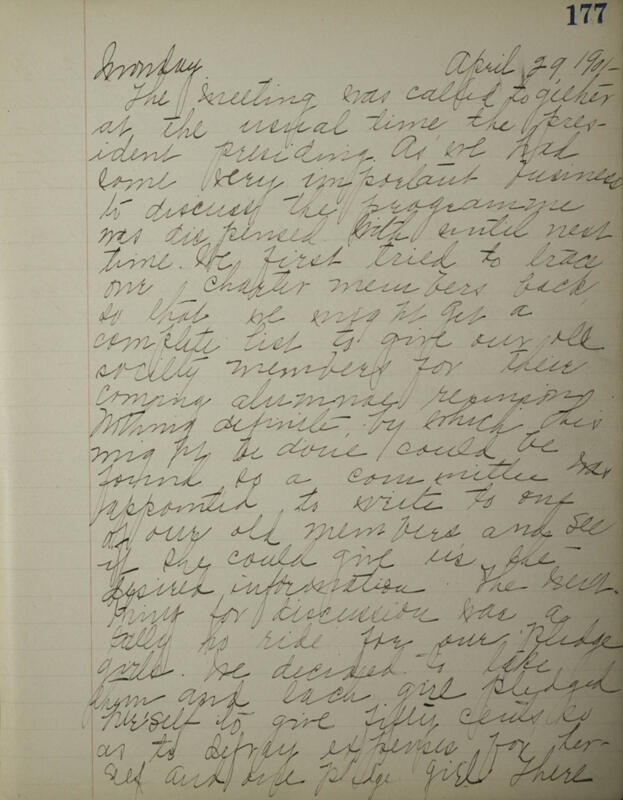 177
Monday April 29, 1901-
The meeting was called together
at the usual time the pres-
ident presiding. As we had
some very important business
to discuss the programme
was dispensed with until next
time. We first tried to trace
our charter members back,
so that we might get a
complete list to give our old
society members for their
coming alumnae reunion.
Nothing definite, by which this
might be done, could be
found so a committee was
appointed to write to one
of our old members and see
if she could give us the
desired information. The next
thing for discussion was a
tally ho ride for our pledge
girls. We decided to take
them and each girl pledged
herself to give fifty cents so
as to defray expenses for her-
self and one pledge girl. There